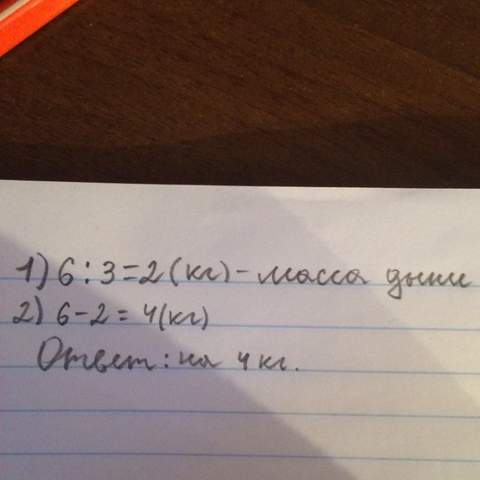 1) 6 : 3 = 2 (кг) - масса дыни
2) 6 - 2 = 4 (кг)
Ответ: на 4 кг.